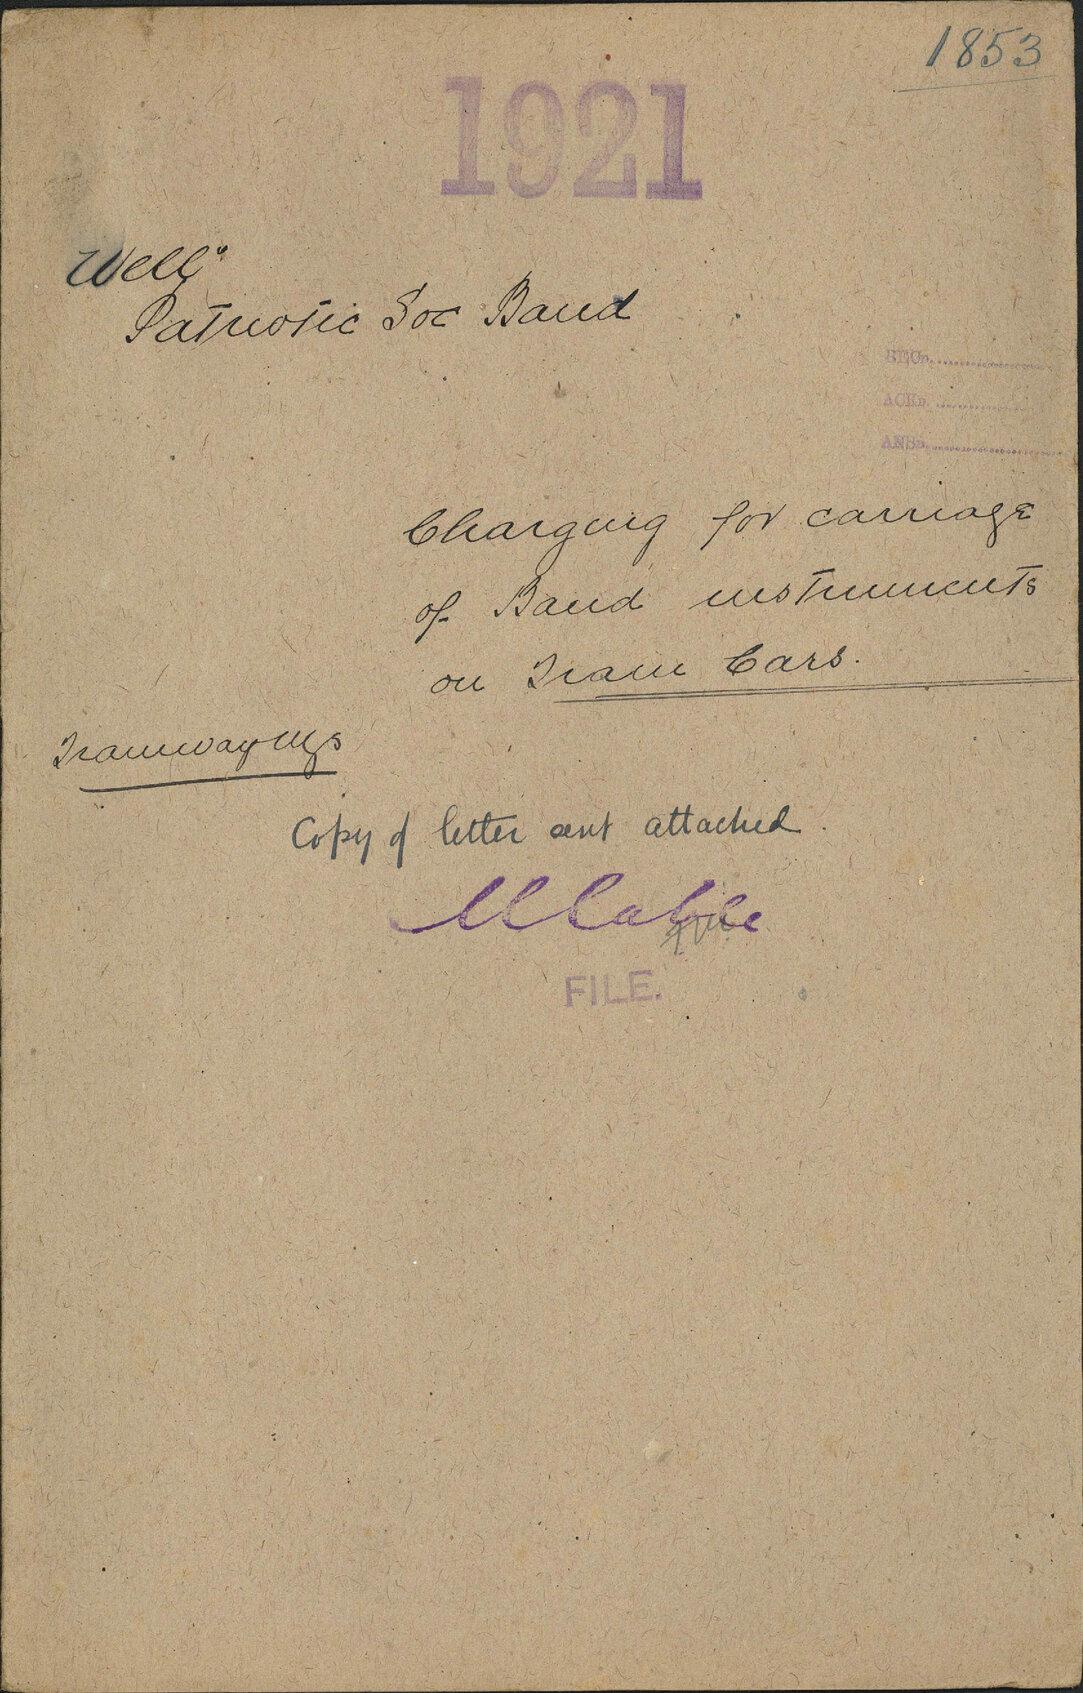 1853
1921
Well"
Patriotic Soc Band
RECD.
ACKD.
ANSD.
Charging for carriage
of Band instruments
on Tram Cars.
Tramway Mgr
Copy of letter sent attached.
FILE.